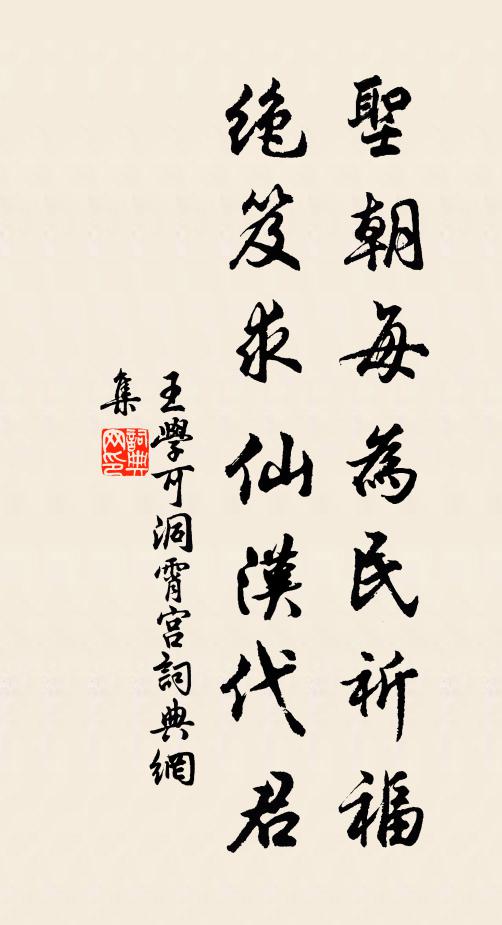 聖朝每為民祈福
絶笈求仙漢代君
王學可洞霄宮詞典網
集
詞典网印